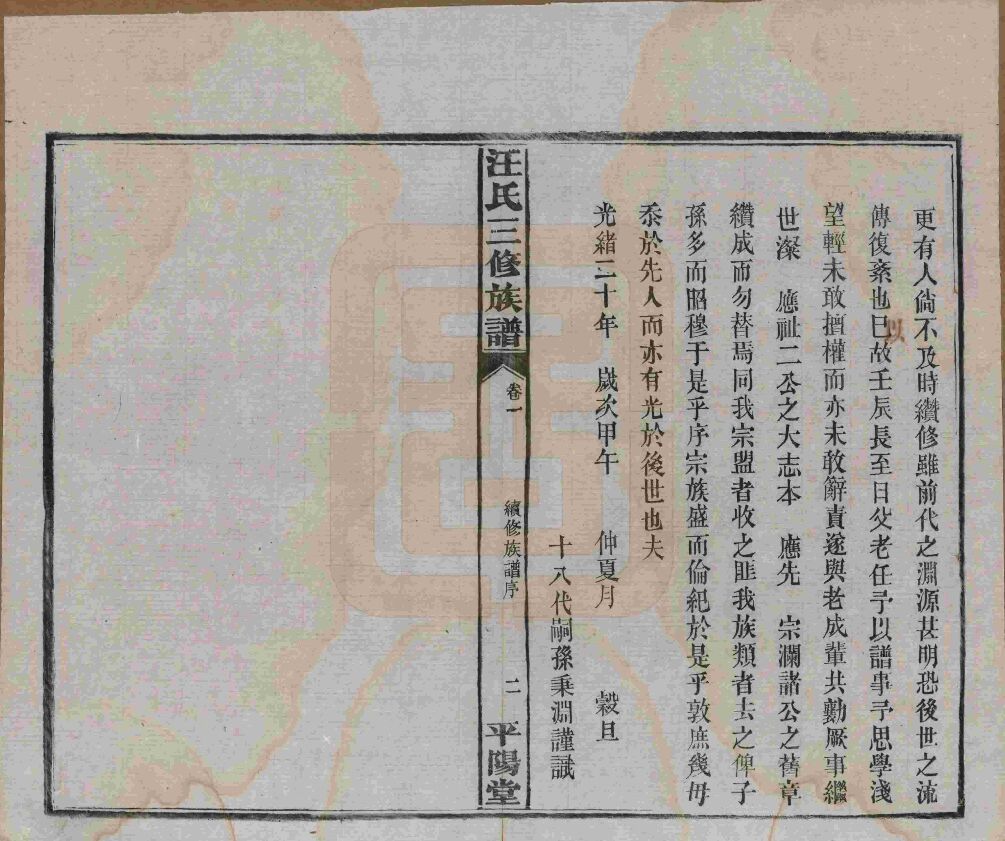 更有人倘不及時纘修雖前代之淵源甚明恐後世之流
傳復紊也已故壬辰長至日父老任予以譜事予思學淺
以
望輕未敢擅權而亦未敢辭責遂與老成輩共勷厥事繼
世深　應祉二公之大志本　應先　宗瀾諸公之舊章
纘成而勿替焉同我宗盟者收之匪我族類者去之俾子
孫多而昭穆于是乎序宗族盛而倫紀於是乎敦庶幾毋
忝於先人而亦有光於後世也夫
光緒二十年　歲次甲午　仲夏月　穀旦
十八代嗣孫秉淵謹識
汪氏三修族譜
卷一
續修族譜序
二
平陽堂